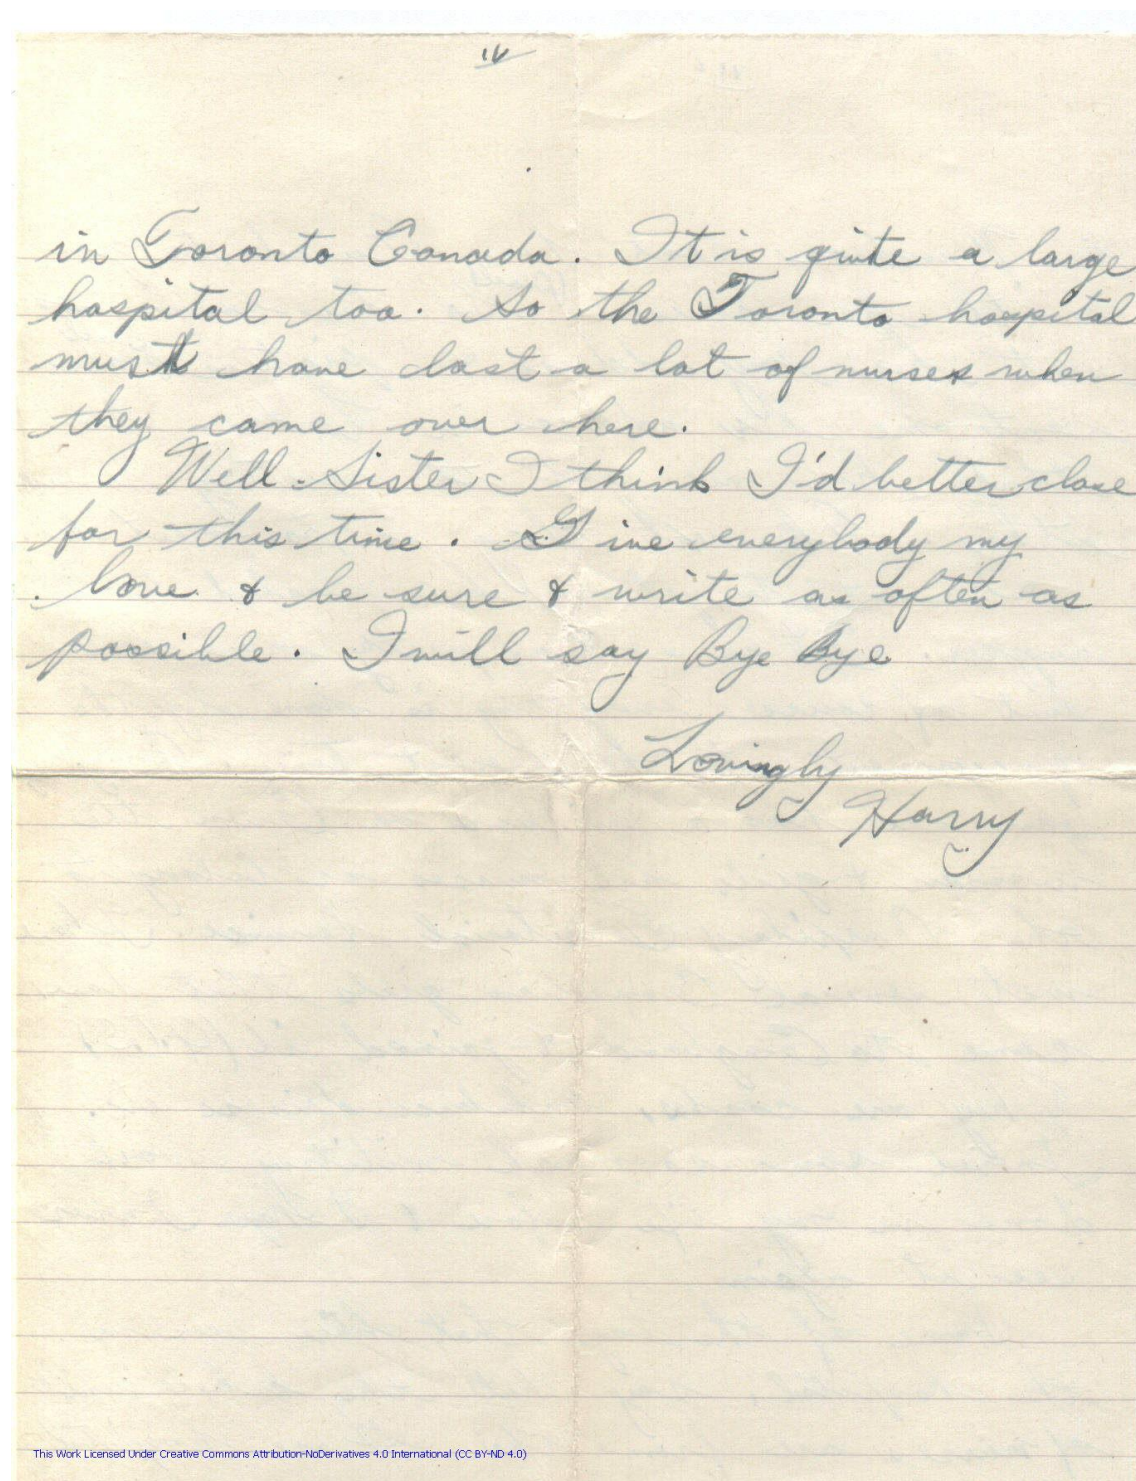 IV
in Toronto Canada. It is quite a large
hospital too. So the Toronto hospital
must have lost a lot of nurses when
they came over here.
Well Sister I think I'd better close
for this time. Give everybody my
love & be sure & write as often as
possible. I will say Bye Bye
Lovingly
Harry
This Work Licensed Under Creative Commons Attribution-NoDerivatives 4.0 International (CC BY-ND 4.0)